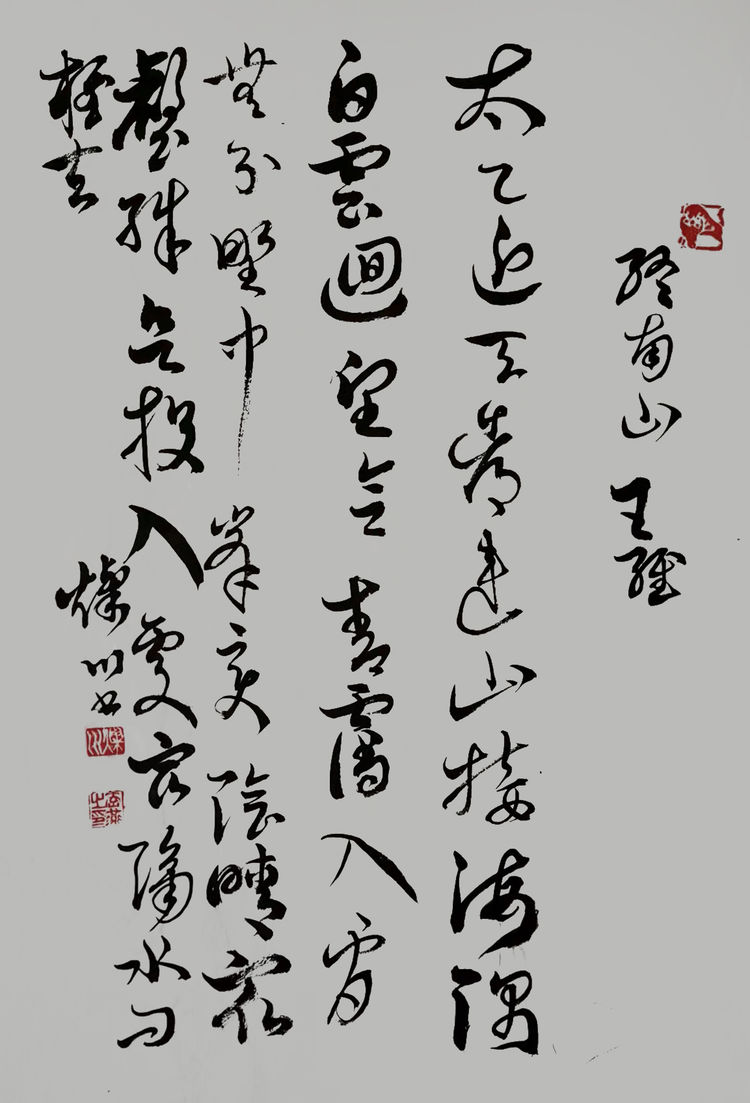 終南山 王維
太乙近天都連山接海隅
白雲迴望合青靄入看
無分野中峯變陰晴衆
壑殊欲投人處宿隔水問
樵夫
燦川書
燦川